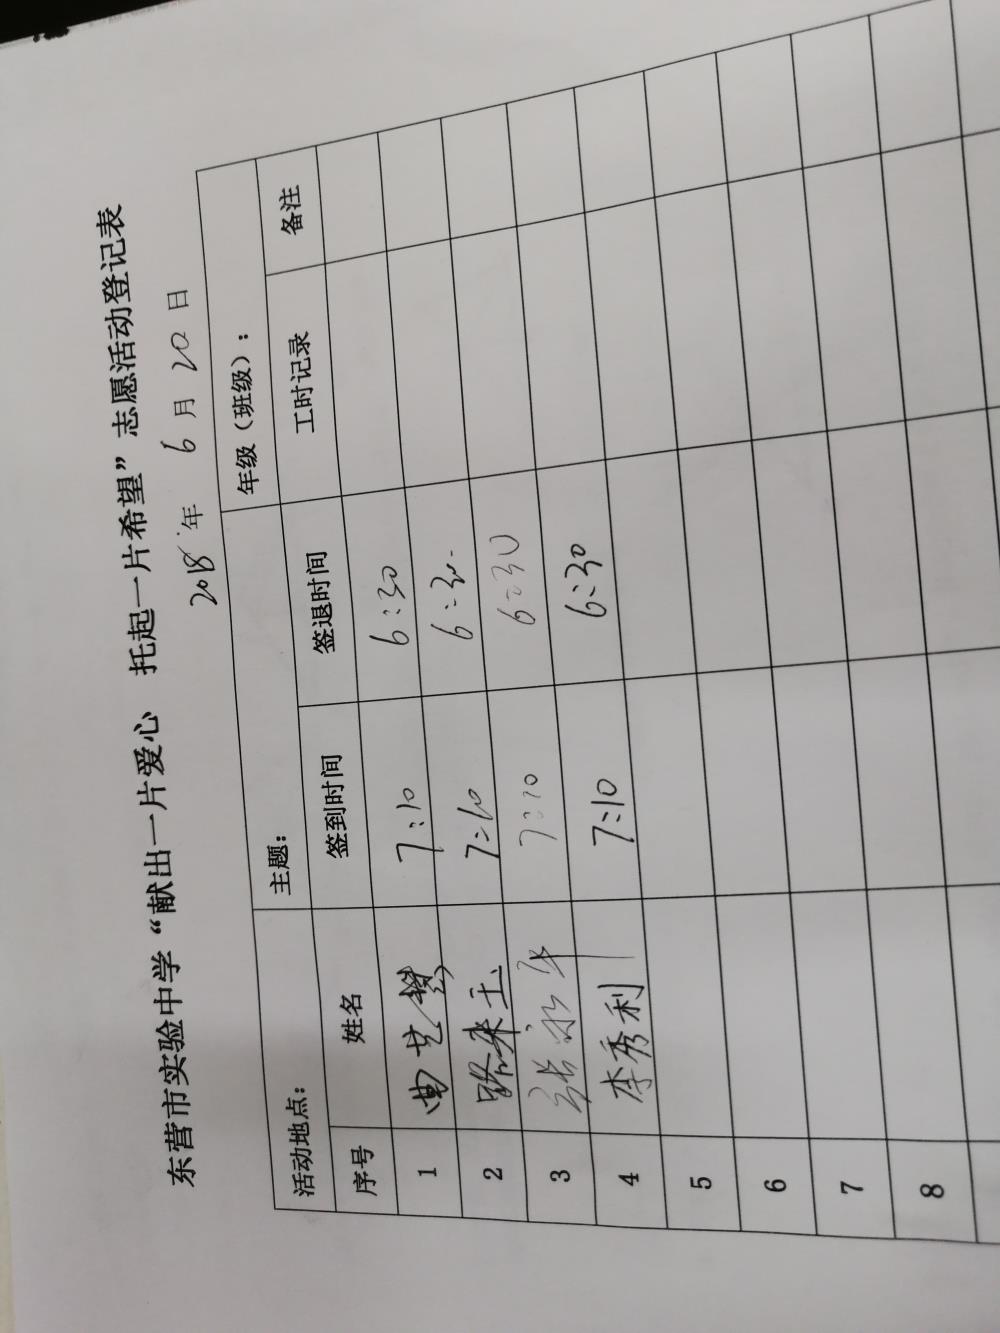 东营市实验中学“献出一片爱心 托起一片希望”志愿活动登记表
2018年 6 月 20 日
活动地点： 主题： 年级（班级）：
序号 姓名 签到时间 签退时间 工时记录 备注
1 曲艺 7:10 6:30
2 路来玉 7:10 6:30
3 张 7:10 6:30
4 李秀利 7:10 6:30
5
6
7
8